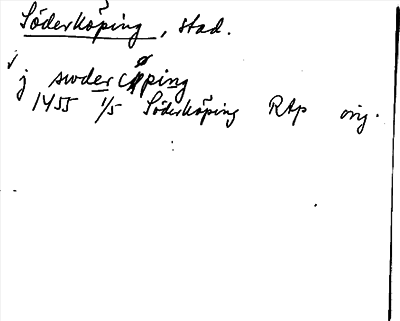 Söderköping, stad.
j swder cøping
1455 1/5 Söderköping RAp orig.